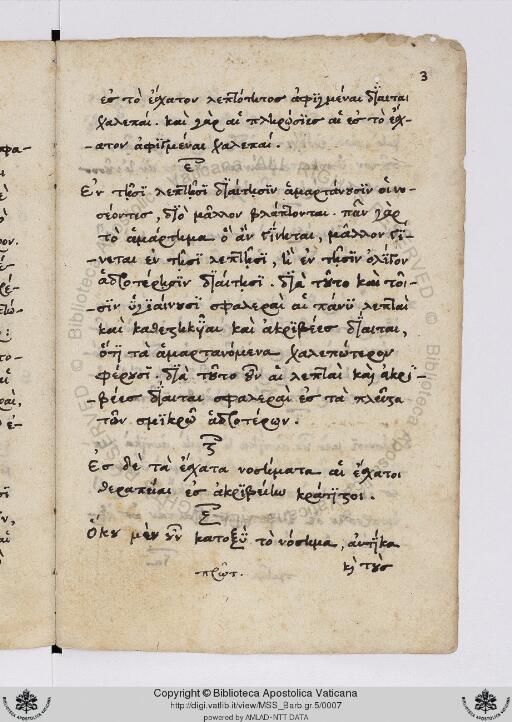 3
ἐσ τὸ ἔσχατον λεπτότητος ἀφιγμέναι δίαιται
χαλεπαί. καὶ γὰρ αἱ πληρώσιες αἱ ἐσ τὸ ἔσχ-
-ατον ἀφιγμέναι χαλεπαί.
ε
Ἐν τῇσι λεπτῇσι διαίτησιν ἁμαρτάνουσιν οἱ νο-
σέοντες, διὸ μᾶλλον βλάπτονται. πᾶν γὰρ
τὸ ἁμάρτημα ὃ ἂν γίνηται, μᾶλλον γί-
-νεται ἐν τῇσι λεπτῇσι, ἢ ἐν τῇσιν ὀλίγον
ἁδροτέρῃσιν διαίτῃσι. διὰ τοῦτο καὶ τοῖ-
σιν ὑγιαίνουσι σφαλεραὶ αἱ πάνυ λεπταὶ
καὶ καθεστηκυῖαι καὶ ἀκριβέες δίαιται,
ὅτι τὰ ἁμαρτανόμενα χαλεπώτερον
φέρουσι. διὰ τοῦτο οὖν αἱ λεπταὶ καὶ ἀκρι-
βέες δίαιται σφαλεραὶ ἐς τὰ πλεῖστα
τῶν σμικρῶ ἁδροτέρων.
ϛ
Ἐς δὲ τὰ ἔσχατα νοσήματα αἱ ἔσχατοι
θεραπεῖαι ἐς ἀκριβείην κράτισται.
ζ
Ὅκου μὲν οὖν κατοξὺ τὸ νόσημα, αὐτίκα
καὶ τοὺς
πρῶτ.
© Biblioteca Apostolica Vaticana
Copyright © Biblioteca Apostolica Vaticana
http://digi.vatlib.it/view/MSS_Barb.gr.5/0007
powered by AMLAD-NTT DATA